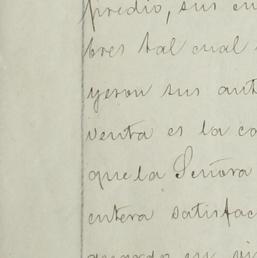 predio, sus en
bres tal cual
yeron sus ant
venta es la co
que la Señora
entera satisfac